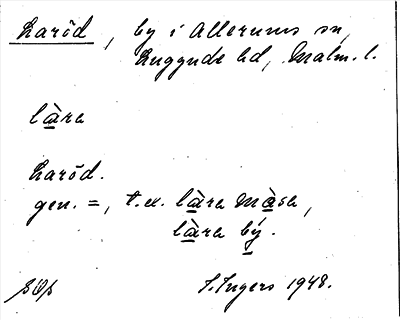 Laröd, by i Allerums sn,
Luggude hd, Malm. l.
làra
Laröd.
gen. =, t.ex. làra màsa,
làra bý.
I. Ingers 1948.